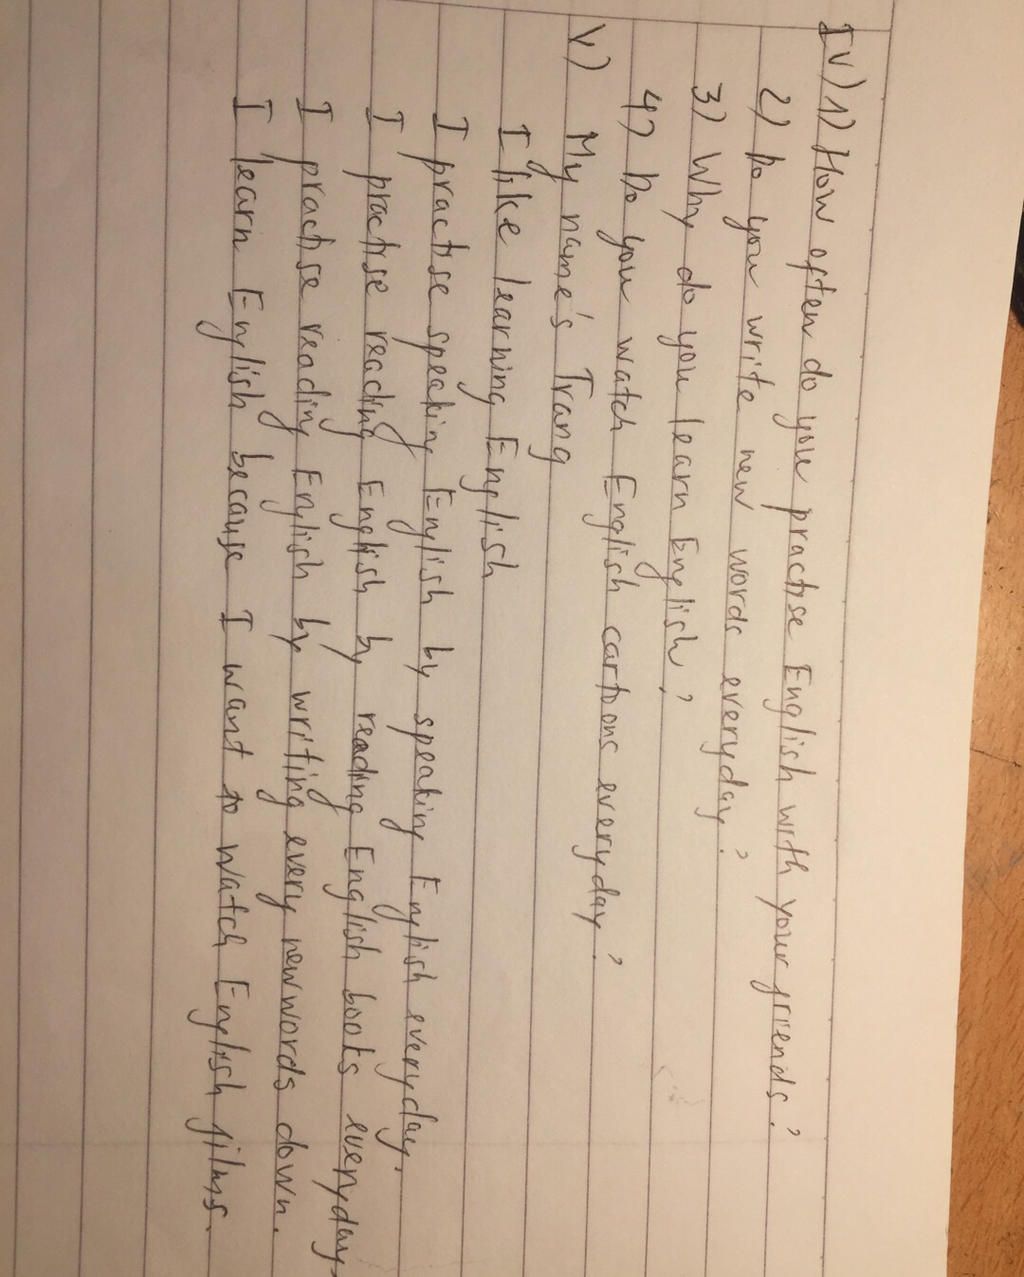 IV) 1) How often do you practise English with your friends?
2) Do you write new words everyday?
3) Why do you learn English?
4) Do you watch English cartoons everyday?
V) My name's Trang
I like learning English
I practise speaking English by speaking English everyday.
I practise reading English by reading English books everyday.
I practise reading English by writing every new words down.
I learn English because I want to watch English films.